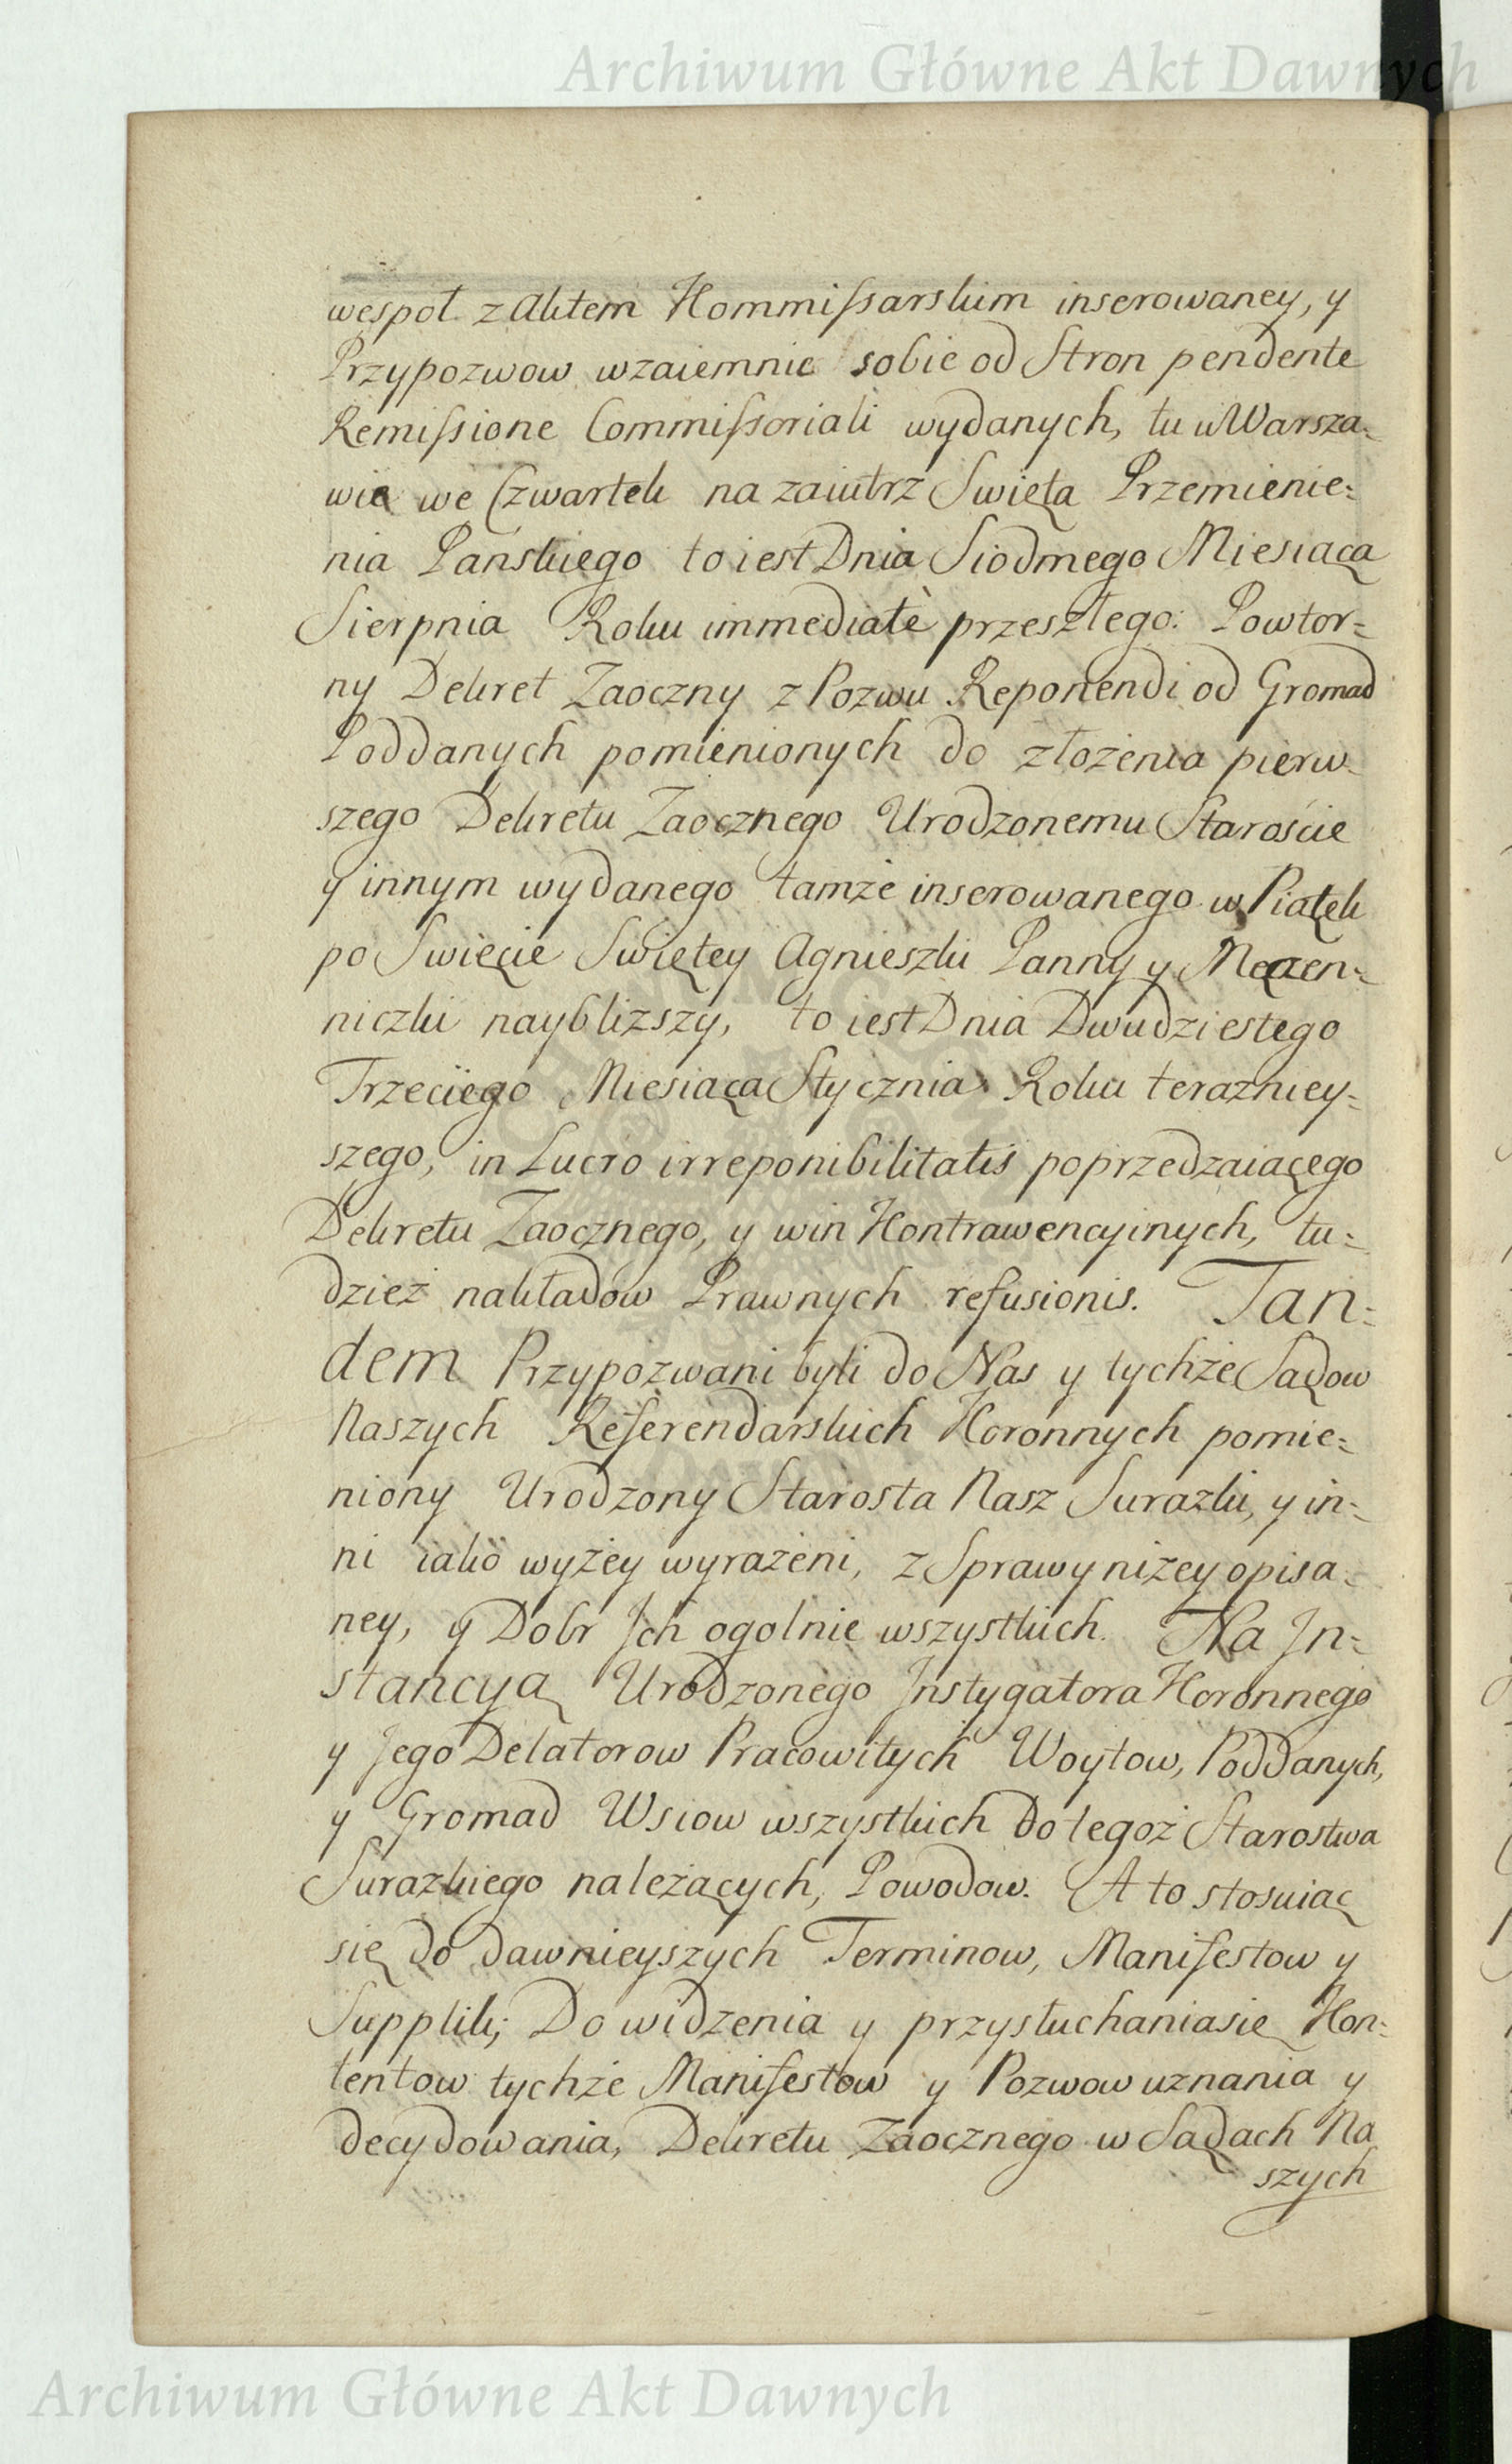 Archiwum Główne Akt Dawnych
wespoł z Aktem Kommissarskim inserowaney, y
Przypozwow wzaiemnie sobie od Stron pendente
Remissione Commissoriali wydanych, tu w Warsza=
wie we Czwartek na zaiutrz Swięta Przemienie=
nia Panskiego to iest Dnia Siodmego Miesiąca
Sierpnia Roku immediatè przeszłego: Powtor=
ny Dekret Zaoczny z Pozwu Reponendi od Gromad
Poddanych pomienionych do złożenia pierw=
szego Dekretu Zaocznego Urodzonemu Staroście
y innym wydanego tamże inserowanego w Piątek
po Swięcie Swiętey Agnieszki Panny y Męczen=
niczki naybliższy, to iest Dnia Dwudziestego
Trzeciego Miesiąca Stycznia Roku terazniey=
szego, in Lucro irreponibilitatis poprzedzaiącego
Dekretu Zaocznego, y win Kontrawencyinych, tu=
dzież nakładow Prawnych refusionis. Tan=
dem Przypozwani byli do Nas y tychże Sądow
Naszych Referendarskich Koronnych pomie=
niony Urodzony Starosta Nasz Surazki, y in=
ni iako wyżey wyrażeni, z Sprawy niżey opisa=
ney, y Dobr Ich ogolnie wszystkich. Na In=
stancyą Urodzonego Instygatora Koronnego
y Jego Delatorow Pracowitych Woytow, Poddanych,
y Gromad Wsiow wszystkich do tegoż Starostwa
Surazkiego należących, Powodow. A to stosuiąc
się do dawnieyszych Terminow, Manifestow y
Supplik; Do widzenia y przysłuchania się Kon=
tentow tychże Manifestow y Pozwow uznania y
decydowania, Dekretu Zaocznego w Sądach Na
szych
Archiwum Główne Akt Dawnych